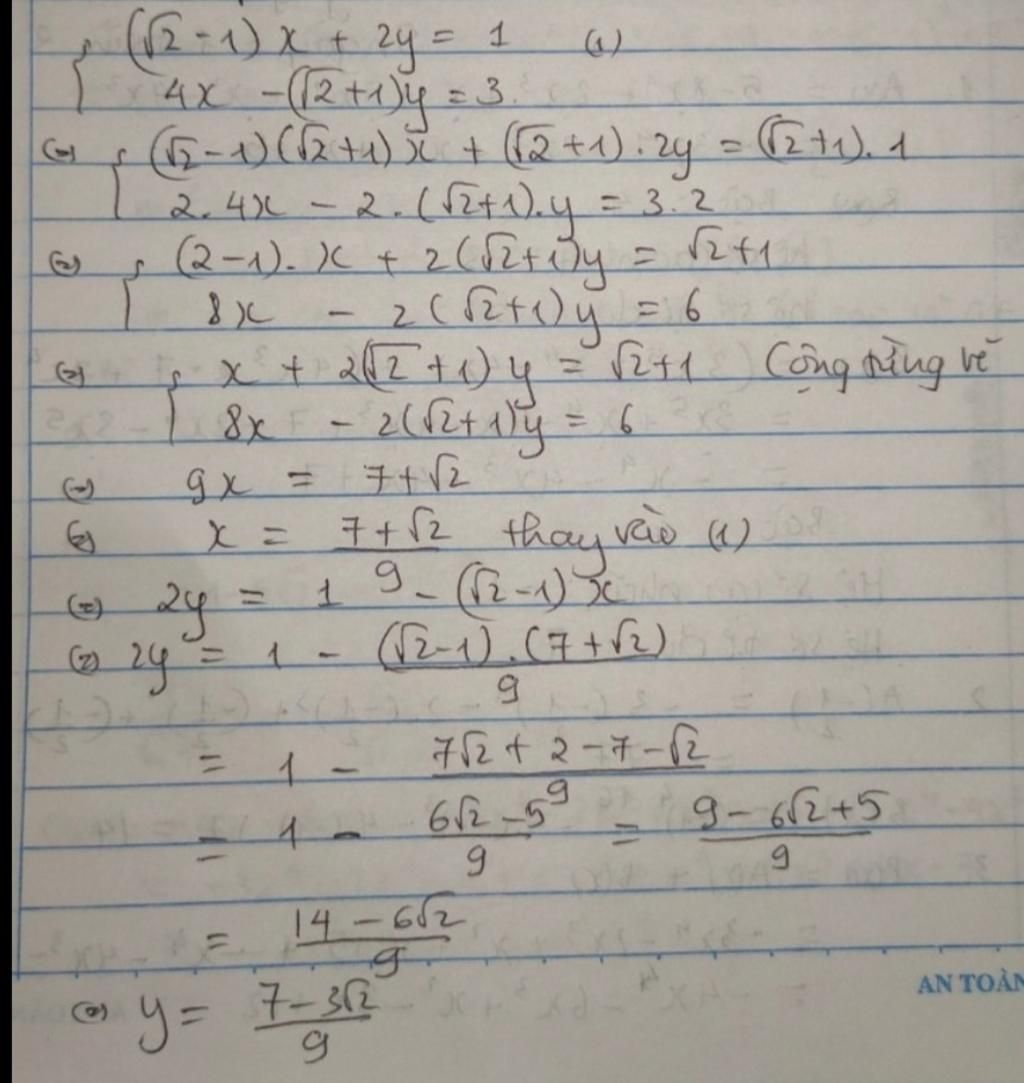 { (√2 - 1) x + 2y = 1 (1)
4x - (√2+1)y = 3
(=) { (√2 - 1)(√2+1) x + (√2+1).2y = (√2+1).1
2.4x - 2.(√2+1).y = 3.2
(=) { (2-1). x + 2(√2+1)y = √2+1
8x - 2(√2+1)y = 6
(=) { x + 2(√2+1)y = √2+1 Cộng từng vế
8x - 2(√2+1)y = 6
(=) 9x = 7+√2
(=) x = (7+√2)/9 thay vào (1)
(=) 2y = 1 - (√2-1) x
(=) 2y = 1 - ((√2-1).(7+√2))/9
= 1 - (7√2 + 2 - 7 - √2)/9
= 1 - (6√2 - 5)/9 = (9 - 6√2 + 5)/9
= (14 - 6√2)/9
AN TOÀN
(=) y = (7 - 3√2)/9